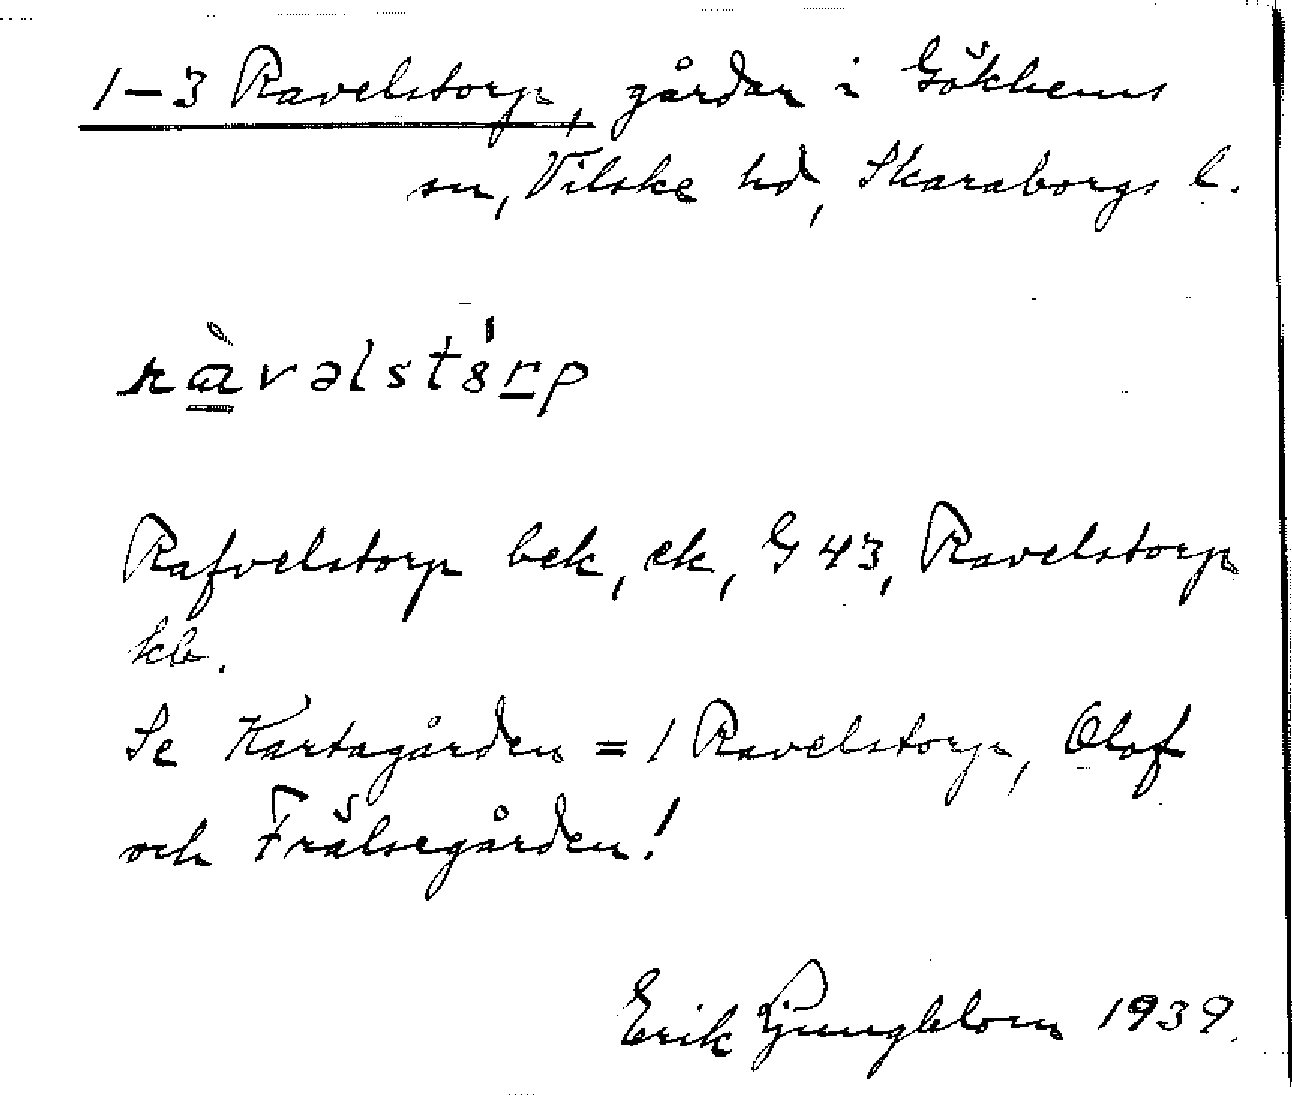 1–3 Ravelstorp, gårdar i Gökhems
sn, Vilske hd, Skaraborgs l.
ràvəlstó̤rp
Rafvelstorp bek, ek, G 43, Ravelstorp
kb.
Se Kartagården = 1 Ravelstorp, Olof
och Frälsegården!
Erik Ljungblom 1939.